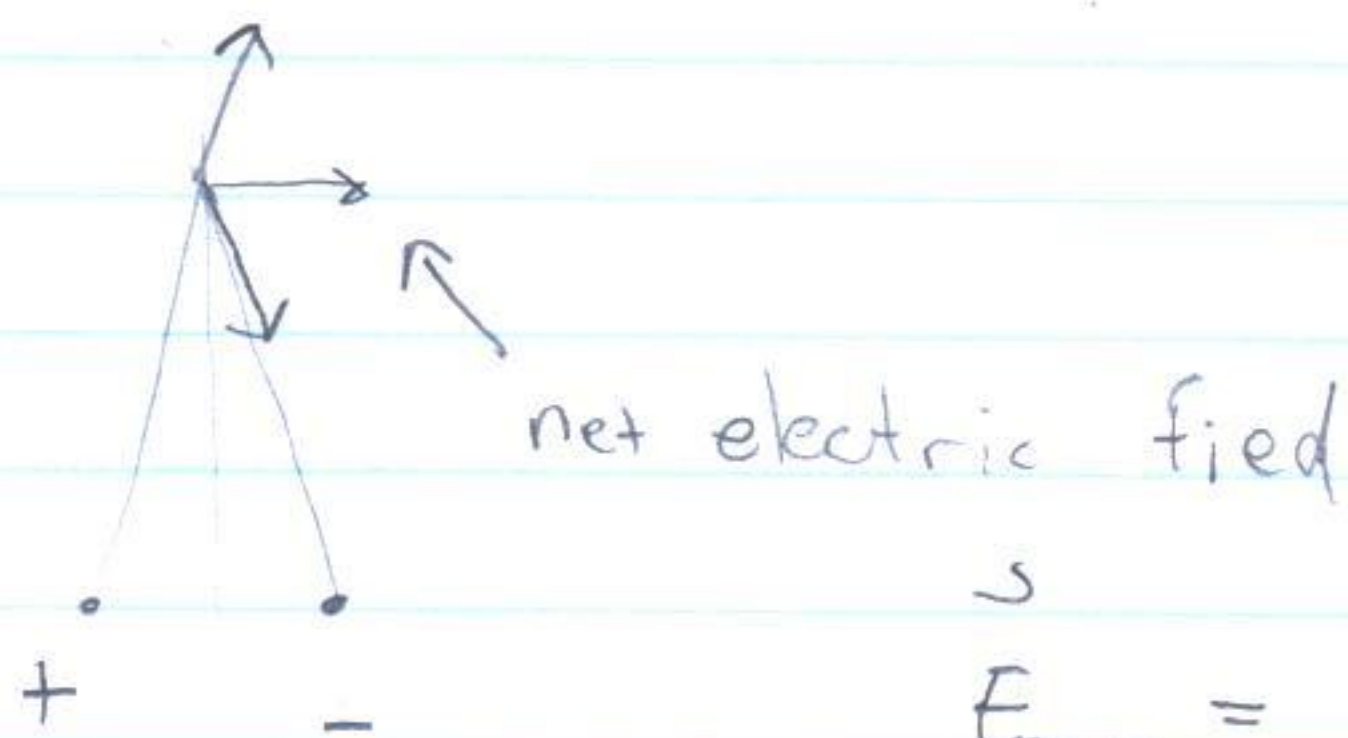 net electric fied
s
+ - E =